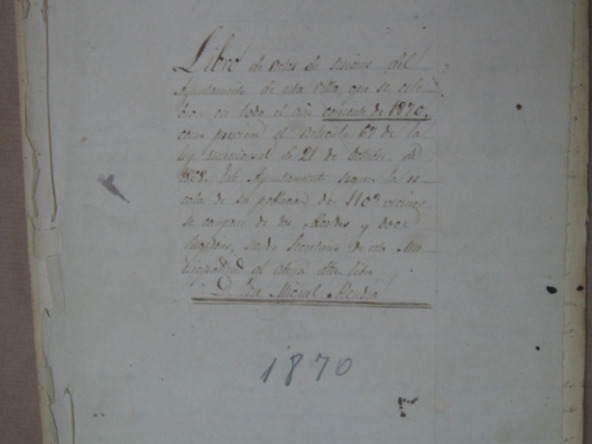 Libro de actas de sesiones del
Ayuntamiento de esta villa, que se cele-
bran en todo el año corriente de 1870,
como previene el artículo 67 de la
ley municipal de 21 de Octubre de
1868. Este Ayuntamiento segun la es-
cala de su poblacion de 1103 vecinos
se compone de dos Alcaldes y doce
Regidores, siendo Secretario de esta Mu-
nicipalidad al abrir este libro
D. José Miguel
1870